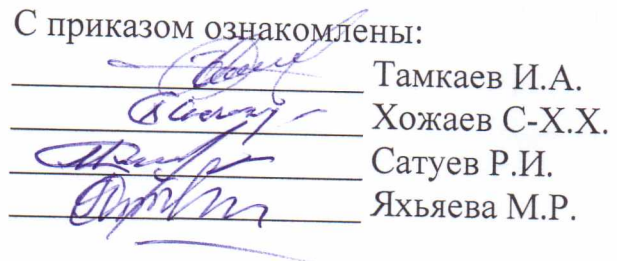 С приказом ознакомлены:
Тамкаев И.А.
Хожаев С-Х.Х.
Сатуев Р.И.
Яхьяева М.Р.